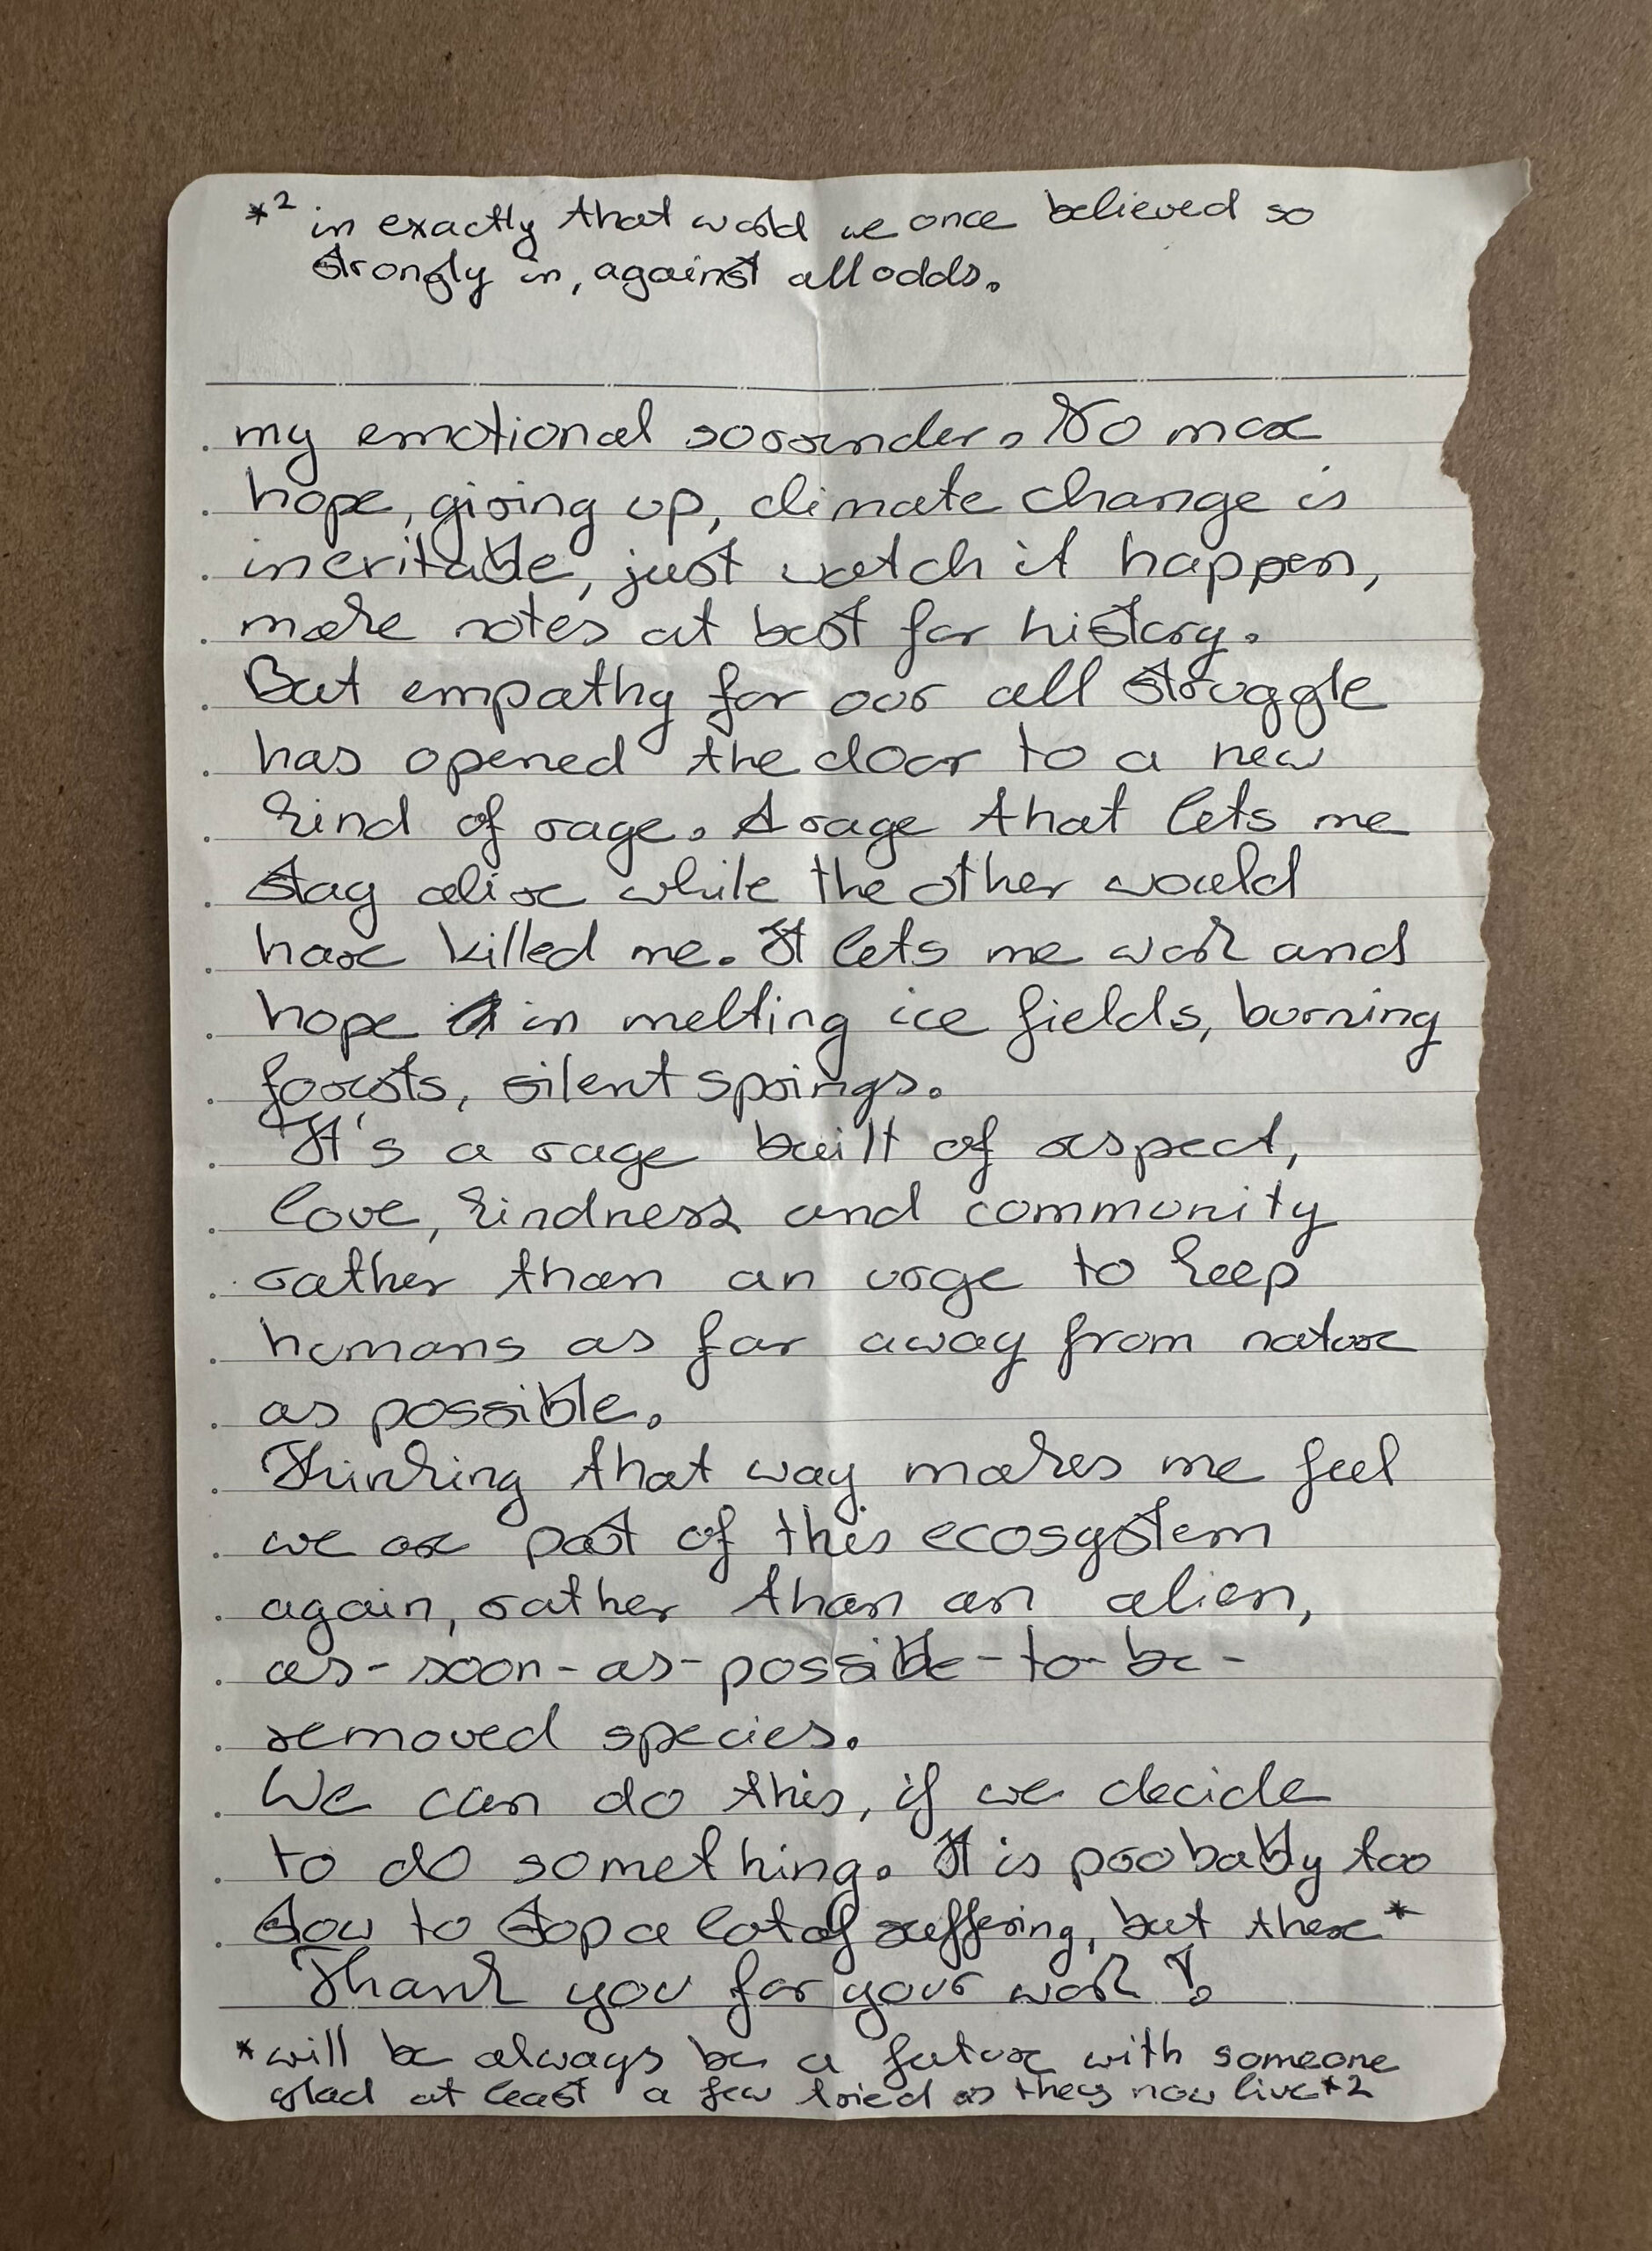 *2 in exactly that world we once believed so
strongly in, against all odds.
my emotional sorrunder. No more
hope, giving up, climate change is
ineritable, just watch it happen,
make notes at best for history.
But empathy for our all struggle
has opened the door to a new
kind of rage. A rage that lets me
stay alive while the other would
have killed me. It lets me work and
hope in melting ice fields, burning
forests, silent springs.
It's a rage built of respect,
love, kindness and community
rather than an urge to keep
humans as far away from nature
as possible.
Thinking that way makes me feel
we are part of this ecosystem
again, rather than an alien,
as-soon-as-possible-to-be-
removed species.
We can do this, if we decide
to do something. It is probably too
slow to stop a lot of suffering, but there*
Thank you for your work!
*will be always be a future with someone
glad at least a few tried as they now live*2